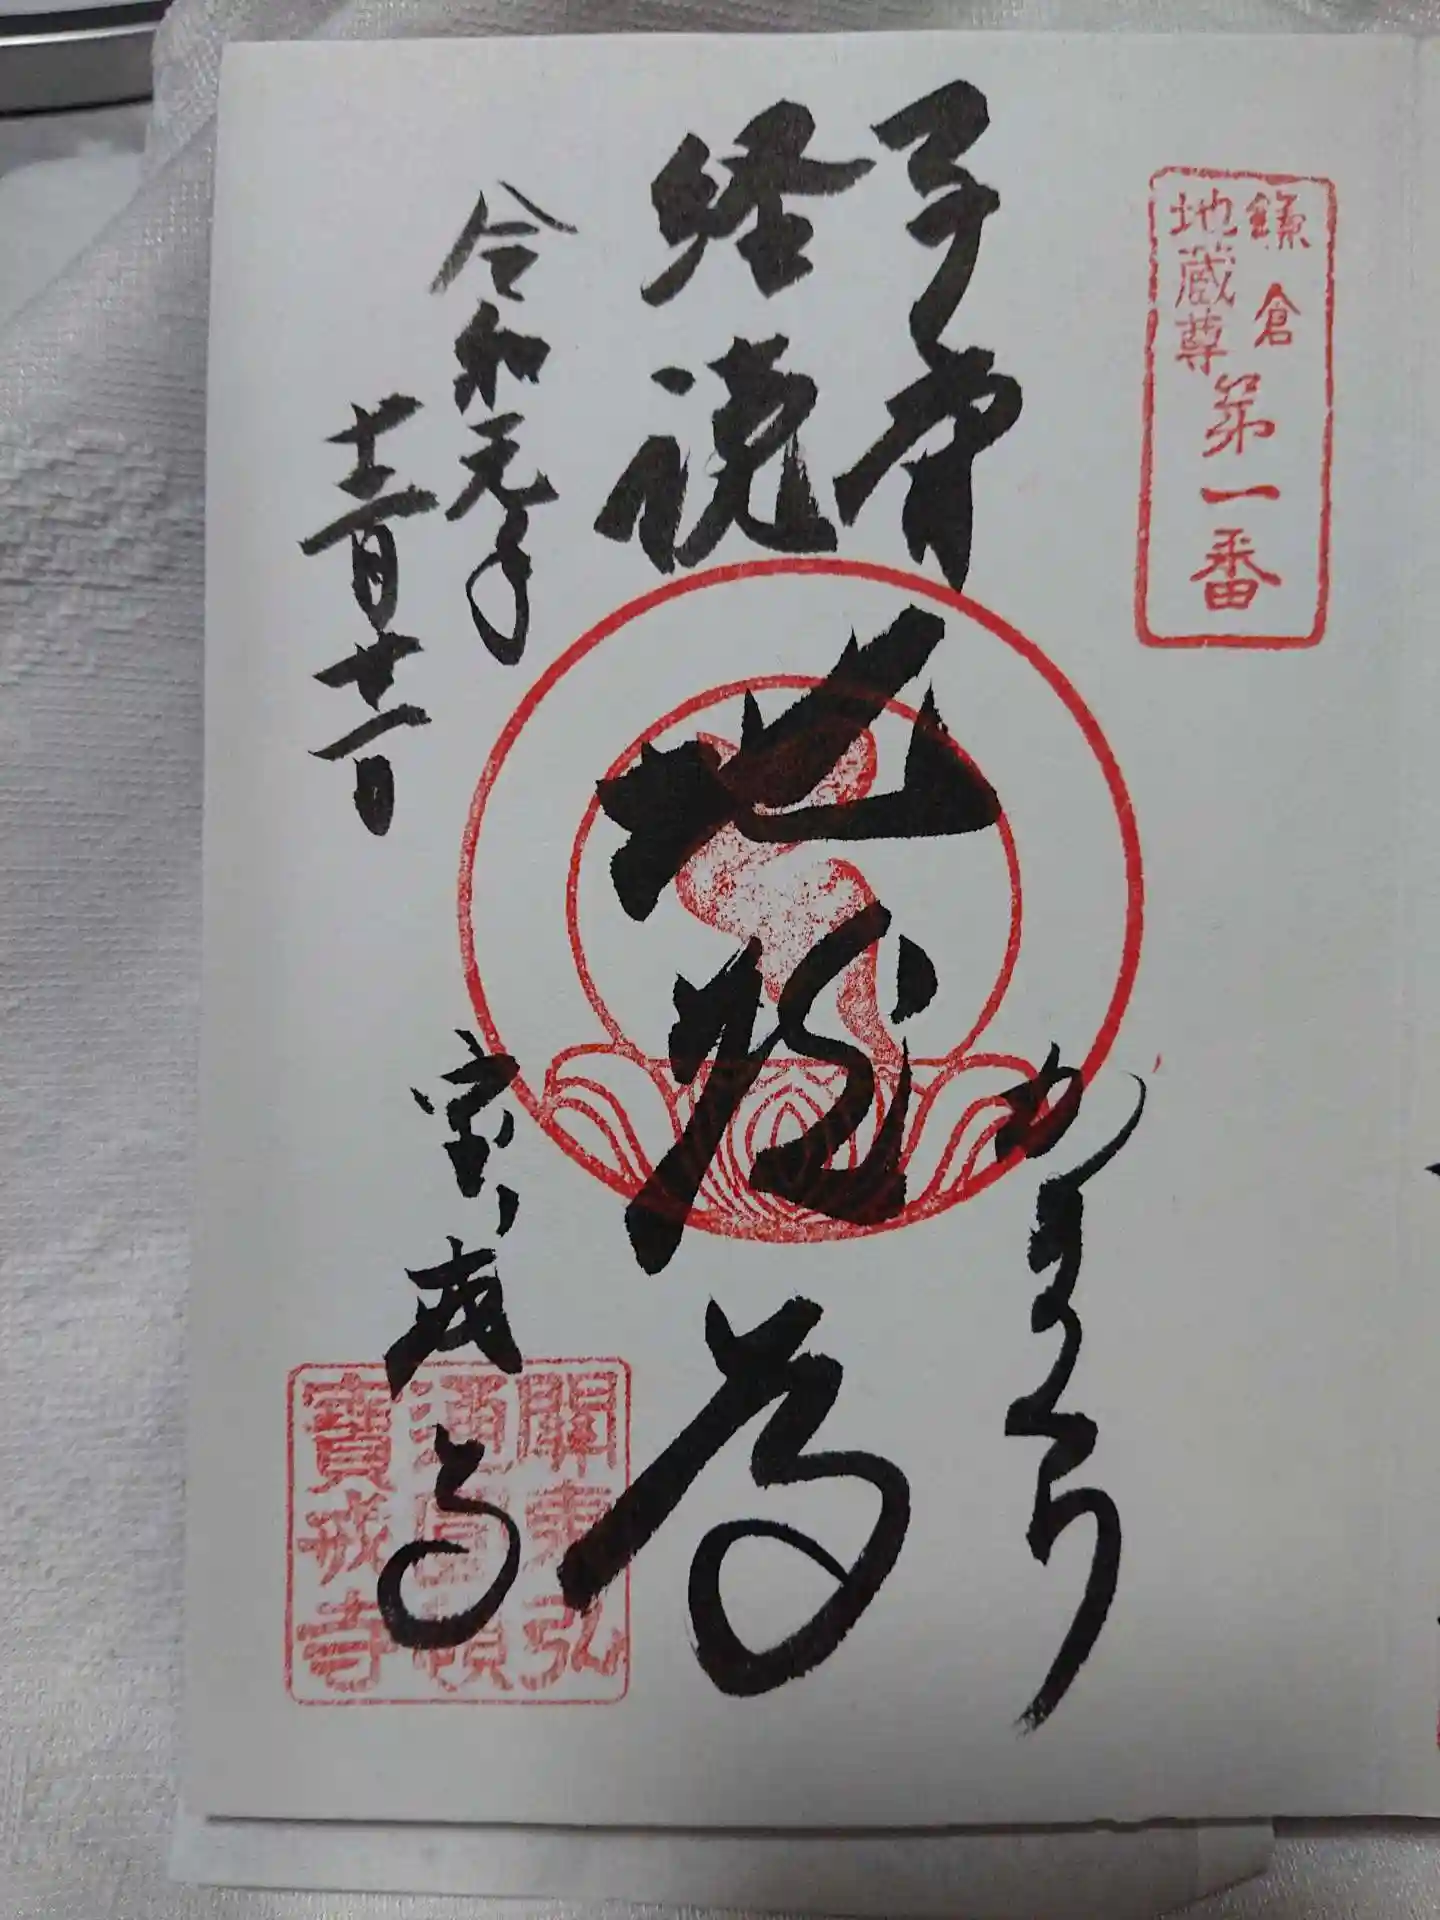 鎌倉
地蔵尊
第一番
かまくら
子育
経読
地蔵尊
令和元年
十二月十一日
宝戒寺
關東弘
通圓頓
寶戒寺